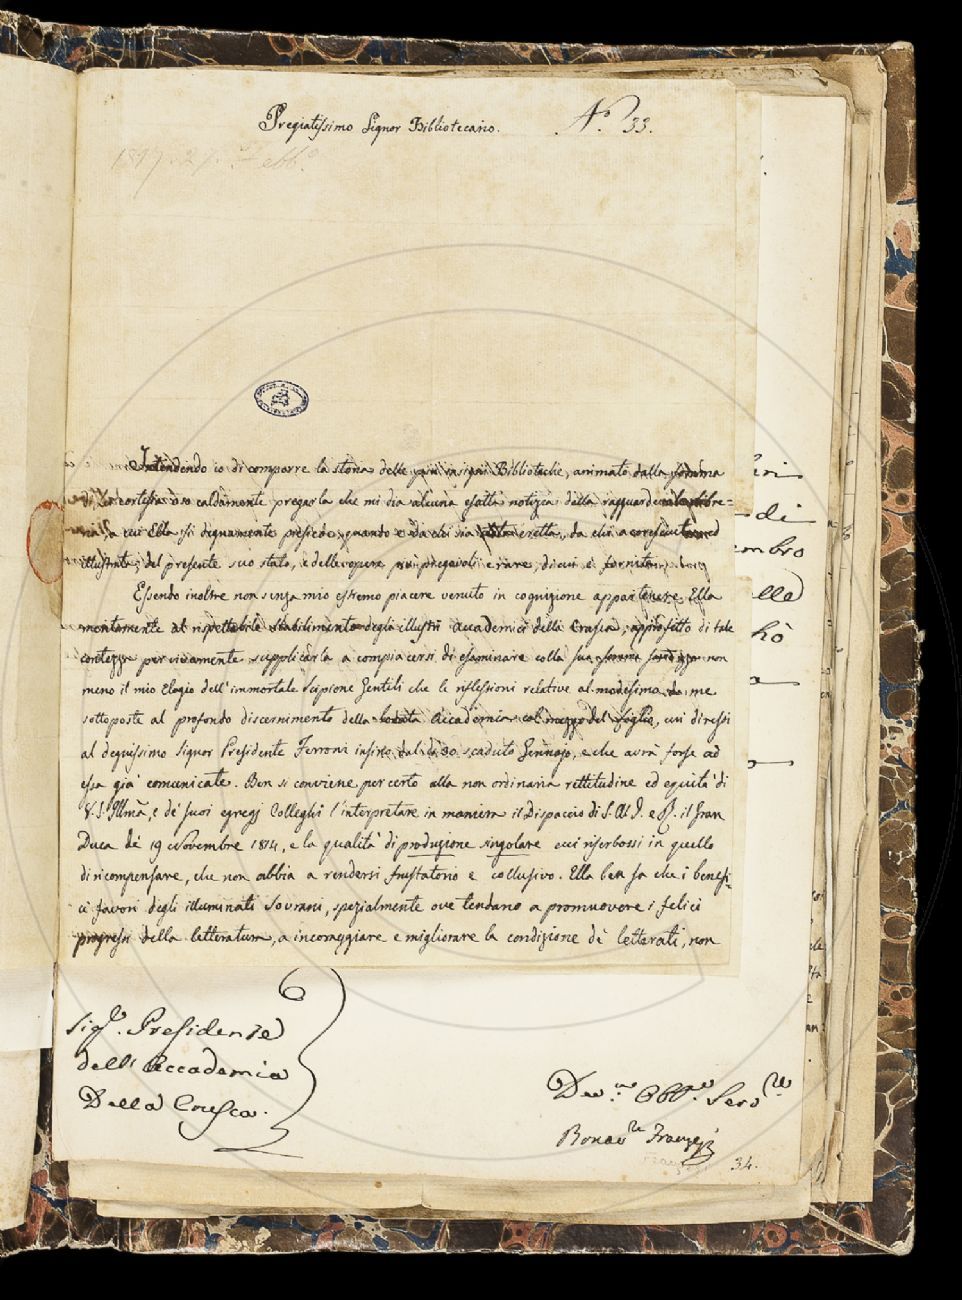 Pregiatissimo Signor Bibliotecario.
N.º 33.
Intendendo io di comporre la storia delle più insigni Biblioteche, animato dalla somma
caldamente pregarla che mi dia alcuna esatta notizia della
a cui Ella sì degnamente presiede, quando e da chi sia stata eretta, da chi accresciuta ed
illustrata, del presente suo stato, e delle opere più pregevoli e rare, di cui è fornita.
Essendo inoltre non senza mio estremo piacere venuto in cognizione appartenere Ella
meritamente al rispettabile stabilimento degli illustri Accademici della Crusca, approfitto di tale
contezza per vivamente supplicarla a compiacersi di esaminare colla sua somma saviezza non
meno il mio Elogio dell'immortale Scipione Gentili che le riflessioni relative al medesimo da me
sottoposte al profondo discernimento della lodata Accademia col mezzo del foglio, cui diressi
al degnissimo Signor Presidente Ferroni infino dal dì 30 scaduto Gennajo, e che avrà forse ad
essa già comunicate. Ben si conviene per certo alla non ordinaria rettitudine ed equità di
V. S. Illma, e de' suoi egregj Colleghi l'interpretare in maniera il Dispaccio di S. A. I. e R. il Gran
Duca de' 19 Novembre 1814, e la qualità di produzione singolare ecci riserbossi in quello
di ricompensare, che non abbia a rendersi frustatorio e collusivo. Ella ben sa che i benefi-
ci favori degli illuminati Sovrani, spezialmente ove tendano a promuovere i felici
progressi della letteratura, a incoraggiare e migliorare la condizione de' letterati, non
Sigr. Presidente
dell'Accademia
Della Crusca.
Devmo Obbmo Servre
34.